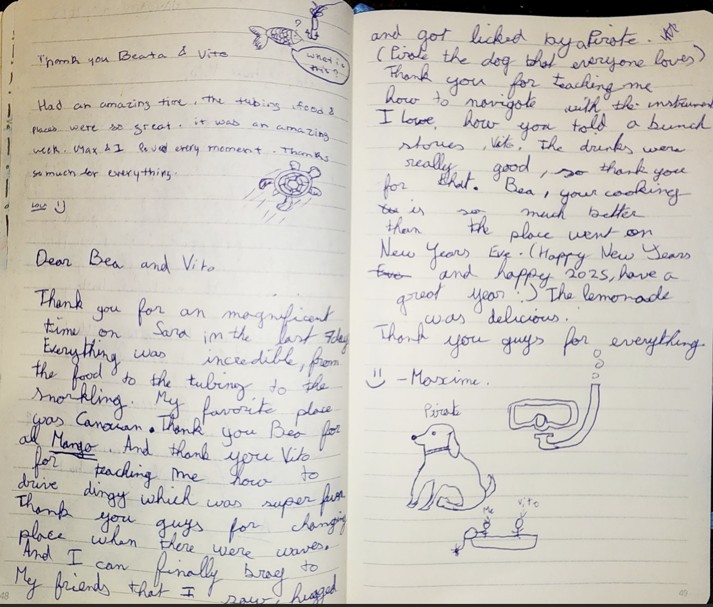 Thank you Beata & Vito
?
what is this?
Had an amazing time. The tubing, food &
places were so great. it was an amazing
week. Max & I loved every moment. Thanks
so much for everything.
Dear Bea and Vito
Thank you for an magnificent
time on Sara in the last 7day
Everything was incredible, from
the food to the tubing to the
snorkling. My favorite place
was Canouan. Thank you Bea for
all Mango. And thank you Vito
for teaching me how to
drive dingy which was super fun
Thank you guys for changing
place when there were waves.
And I can finally brag to
My friends that I saw, hugged
48
and got licked by a Pirate.
(Pirate the dog that everyone loves)
Thank you for teaching me
how to navigate with the instrument
I love how you told a bunch
stories, Vito. The drinks were
really good, so thank you
for that. Bea, your cooking
is so much better
than the place went on
New Years Eve. (Happy New Years
Eve and happy 2025, have a
great year :) The lemonade
was delicious.
Thank you guys for everything
- Maxime.
Pirate
Me Vito
49